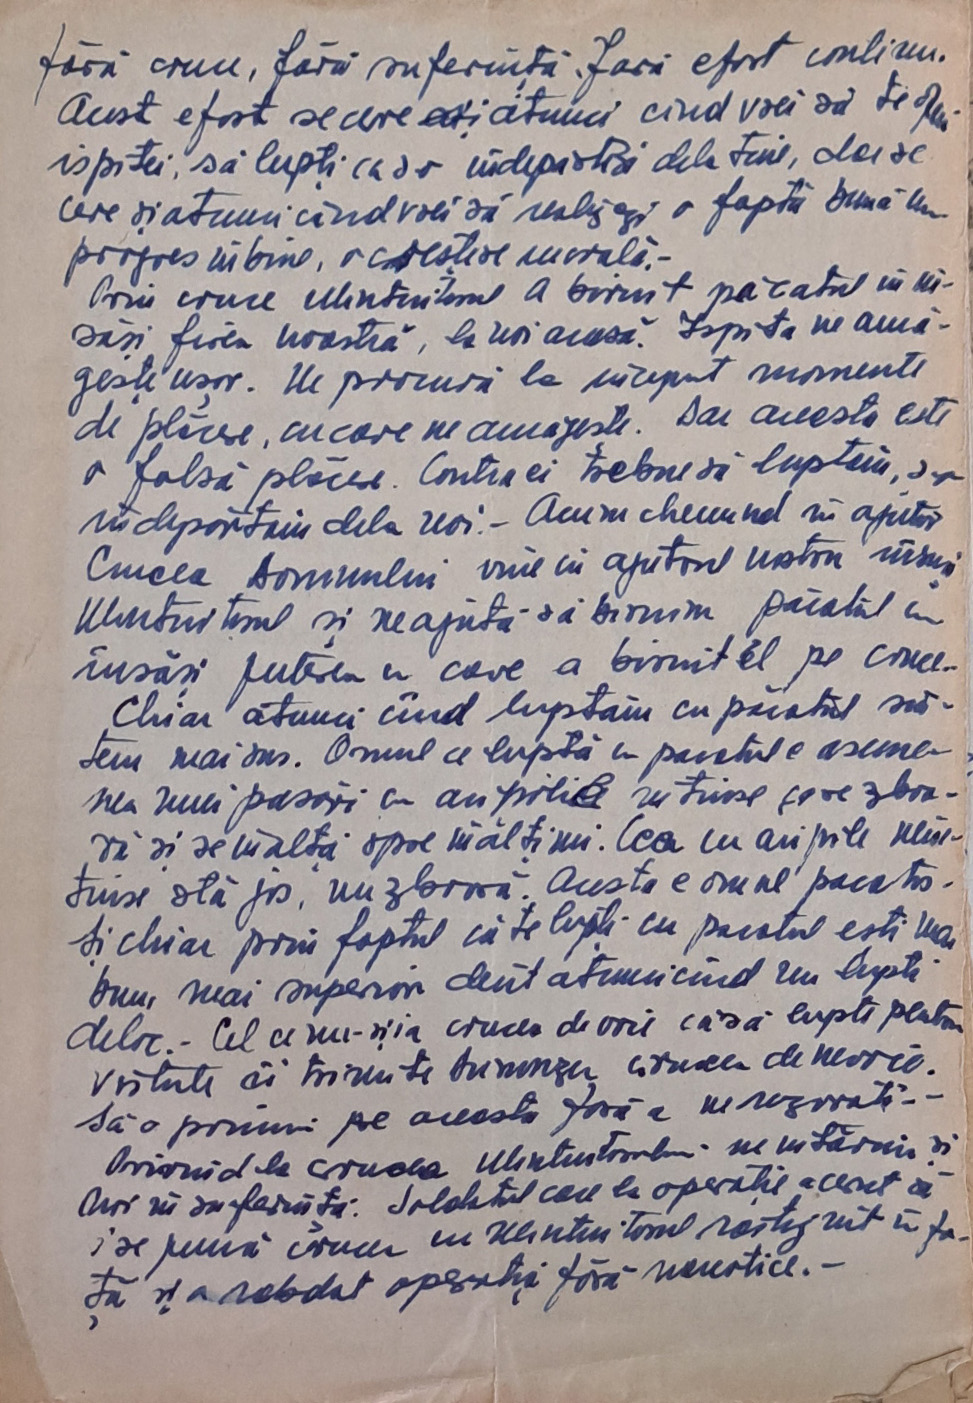 fără cruce, fără suferință. Fără efort continu.
Acest efort se cere și atunci cînd vrei să te opui
ispitei, să lupți ca s-o îndepărtezi dela tine, dar se
cere și atunci cînd vrei să realizezi o faptă bună un
progres în bine, o creștere morală.-
Prin cruce Mîntuitorul a biruit păcatul în în-
săși firea noastră, la noi acasă. Ispita ne amă-
gește ușor. Ne procură la început momente
de plăcere, cu care ne amăgește. Dar aceasta este
o falsă plăcere. Contra ei trebue să luptăm, s-o
îndepărtăm dela noi.- Acum chemînd în ajutor
Crucea Domnului vine în ajutorul nostru însuși
Mîntuitorul și ne ajută să biruim păcatul cu
însăși puterea cu care a biruit El pe cruce.
Chiar atunci cînd luptăm cu păcatul sîn-
tem mai sus. Omul ce luptă cu păcatul e aseme-
nea unei pasări cu aripile întinse care zboa-
ră și se înalță spre înălțimi. Cea cu aripile neîn-
tinse stă jos, nu zboară. Acesta e omul păcătos.
Și chiar prin faptul că te lupți cu pacatul ești mai
bun, mai superior decît atunci cînd nu lupți
deloc.- Cel ce nu-și ia crucea de voie ca să lupte pentru
virtute îi trimite Dumnezeu crucea de nevoie.
Să o primim pe aceasta fără a ne răzvrăti.-
Privind la crucea Mîntuitorului ne întărim și
noi în suferință. Soldatul care la operație a cerut să
i se pună crucea cu Mîntuitorul răstignit în fa-
ță și a rabdat operația fără narcotice.-